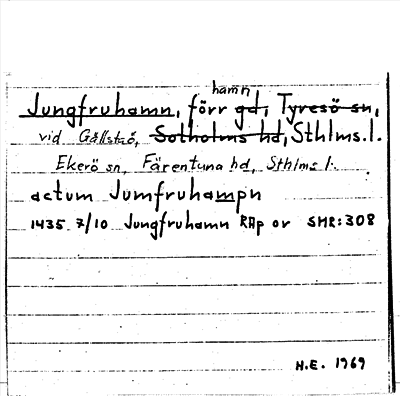 hamn
Jungfruhamn, förr gd, Tyresö sn,
vid Gällstaö, Sotholms hd, Sthlms. l.
Ekerö sn, Färentuna hd, Sthlms l.
actum Jumfruhampn
1435 7/10 Jungfruhamn RAp or SMR:308
H.E. 1969